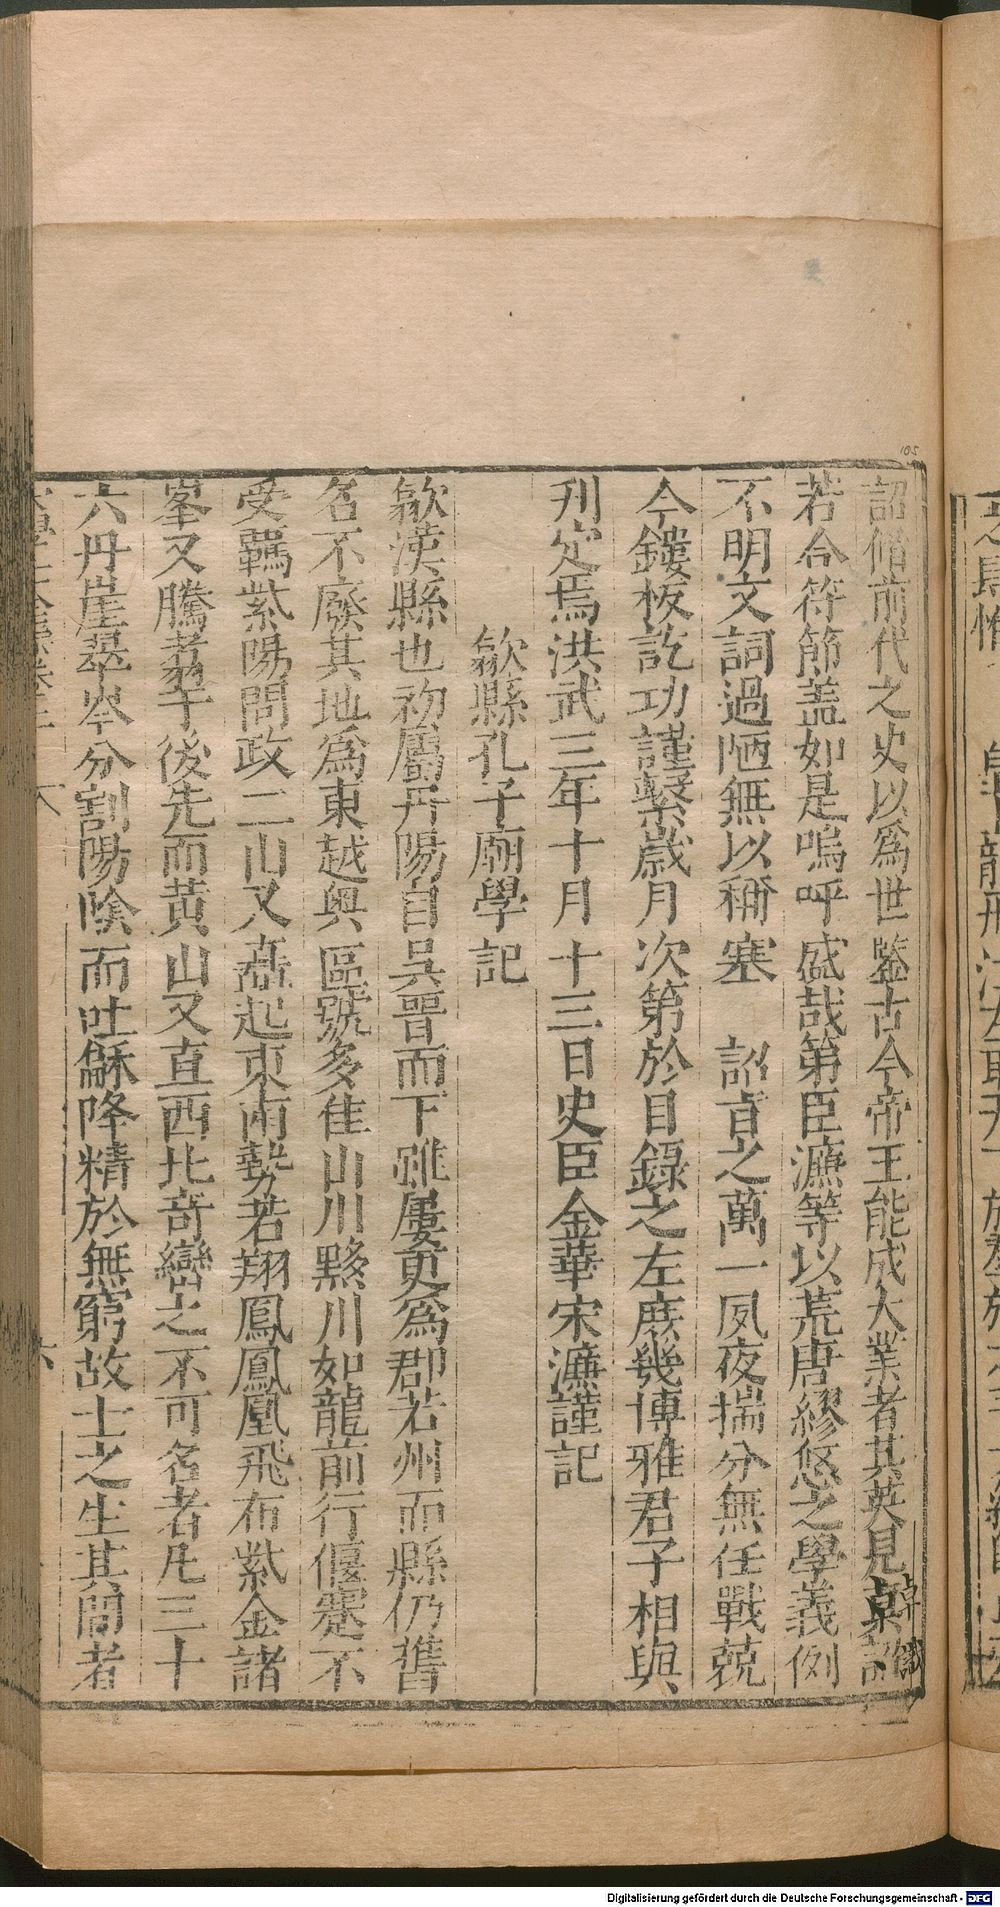 詔脩前代之史以爲世鑒古今帝王能成大業者其英見卓識
若合符節盖如是嗚呼盛哉第臣濂等以荒唐繆悠之學義例
不明文詞過陋無以稱塞 詔㫖之萬一夙夜揣分無任戰兢
今鏤板訖功謹繫歲月次第於目錄之左庶幾博雅君子相與
刋定焉洪武三年十月十三日史臣金華宋濂謹記
歙縣孔子廟學記
歙漢縣也初屬丹陽自吳晉而下雖屢更爲郡若州而縣仍舊
名不廢其地爲東越輿區號多佳山川黟川如龍前行偃蹇不
受羈紫陽問政二山又矗起東南勢若翔鳳鳳凰飛布紫金諸
峯又騰㩜午後先而黃山又直西北奇巒之不可名者凡三十
六丹崖翠岑分割陽陰而吐龢降精於無窮故士之生其間者
六
105
Digitalisierung gefördert durch die Deutsche Forschungsgemeinschaft - DFG